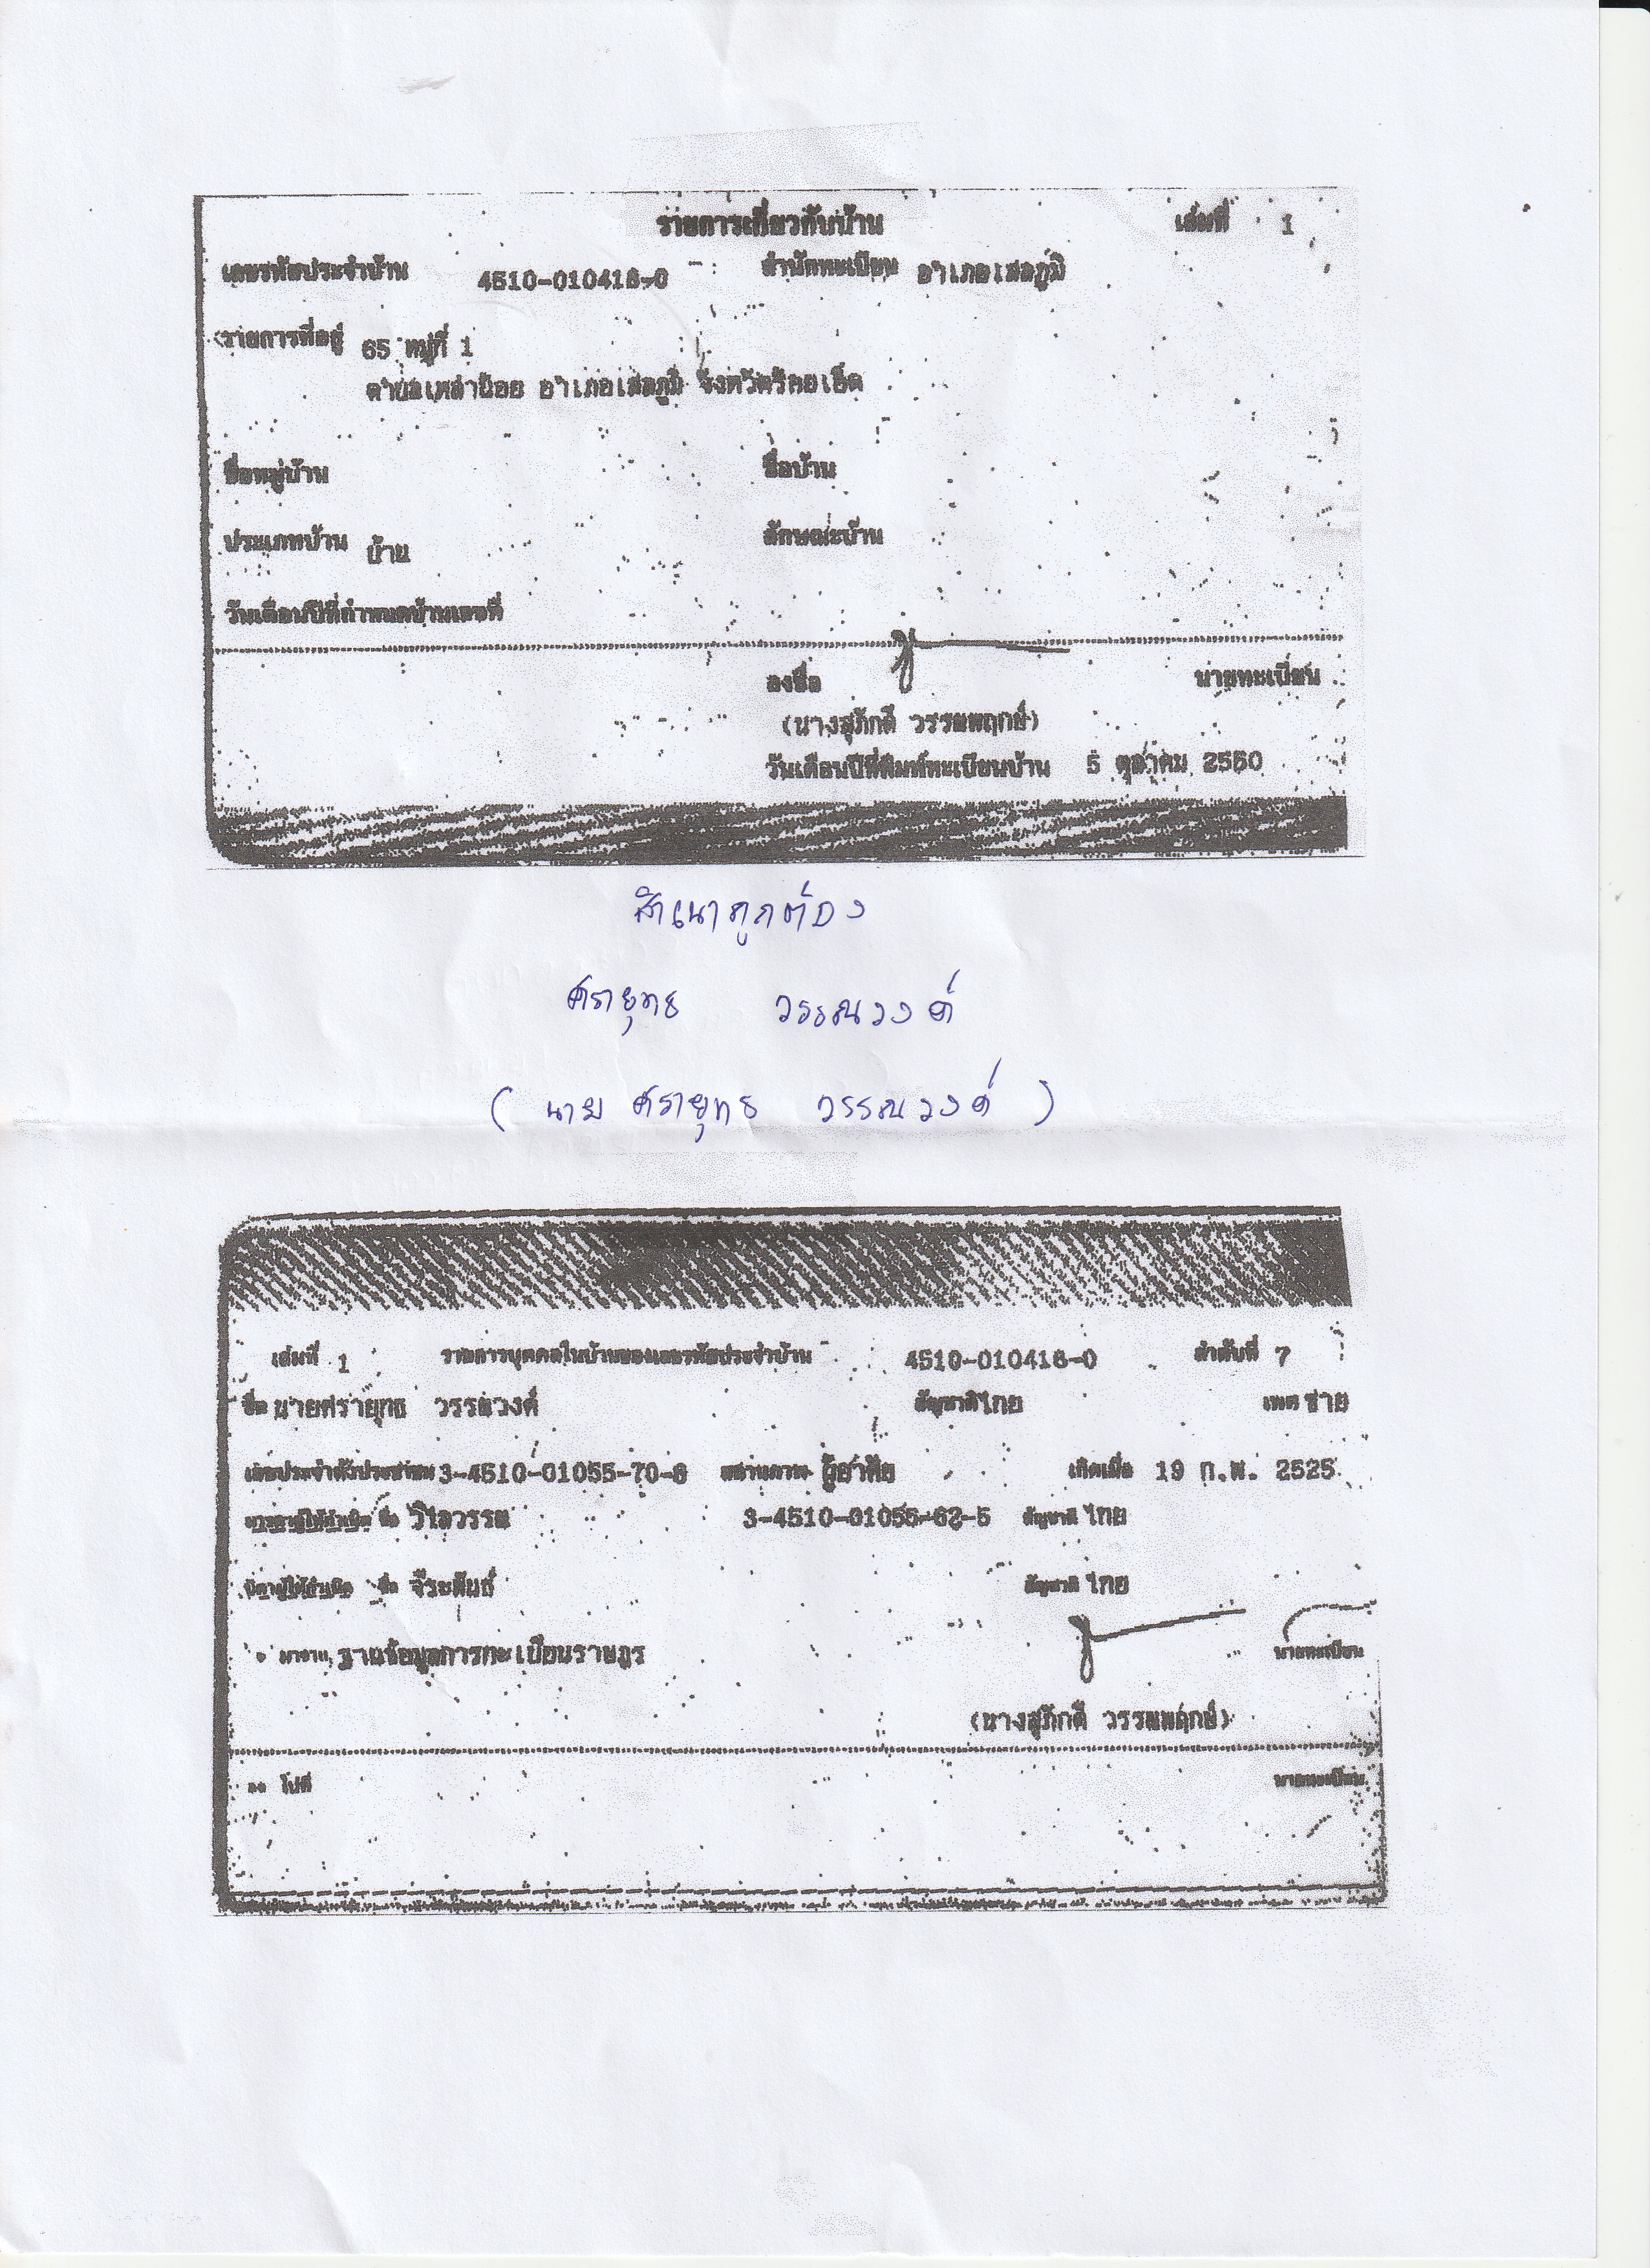 รายการเกี่ยวกับบ้าน เล่มที่ 1
เลขรหัสประจำบ้าน 4510-010418-0 สำนักทะเบียน อำเภอเสลภูมิ
รายการที่อยู่ 65 หมู่ที่ 1
ตำบลเหล่าน้อย อำเภอเสลภูมิ จังหวัดร้อยเอ็ด
ชื่อหมู่บ้าน ชื่อบ้าน
ประเภทบ้าน บ้าน ลักษณะบ้าน
วันเดือนปีที่กำหนดบ้านเลขที่
ลงชื่อ นายทะเบียน
(นางสุภักดี วรรณพฤกษ์)
วันเดือนปีที่พิมพ์ทะเบียนบ้าน 5 ตุลาคม 2550
สำเนาถูกต้อง
ศรายุทธ วรรณวงค์
( นาย ศรายุทธ วรรณวงค์ )
เล่มที่ 1 รายการบุคคลในบ้านของเลขรหัสประจำบ้าน 4510-010418-0 ลำดับที่ 7
ชื่อ นายศรายุทธ วรรณวงค์ สัญชาติ ไทย เพศ ชาย
เลขประจำตัวประชาชน 3-4510-01055-70-6 สถานภาพ ผู้อาศัย เกิดเมื่อ 19 ก.พ. 2525
มารดาผู้ให้กำเนิด ชื่อ วิไลวรรณ 3-4510-01055-62-5 สัญชาติ ไทย
บิดาผู้ให้กำเนิด ชื่อ จีระพันธ์ สัญชาติ ไทย
มาจาก ฐานข้อมูลการทะเบียนราษฎร นายทะเบียน
(นางสุภักดี วรรณพฤกษ์)
ไปที่ นายทะเบียน